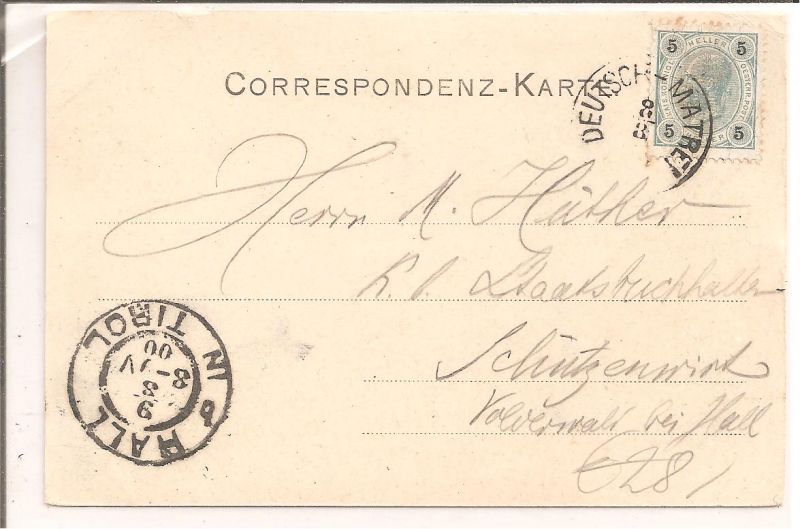 CORRESPONDENZ-KARTE
5 HELLER 5
5 5
DEUTSCH MATREI
Herrn M. Hüther
K. b. Staatsbuchhalter
Schützenwirt
Volderwald bei Hall
HALL IN TIROL
9 8
8-
00